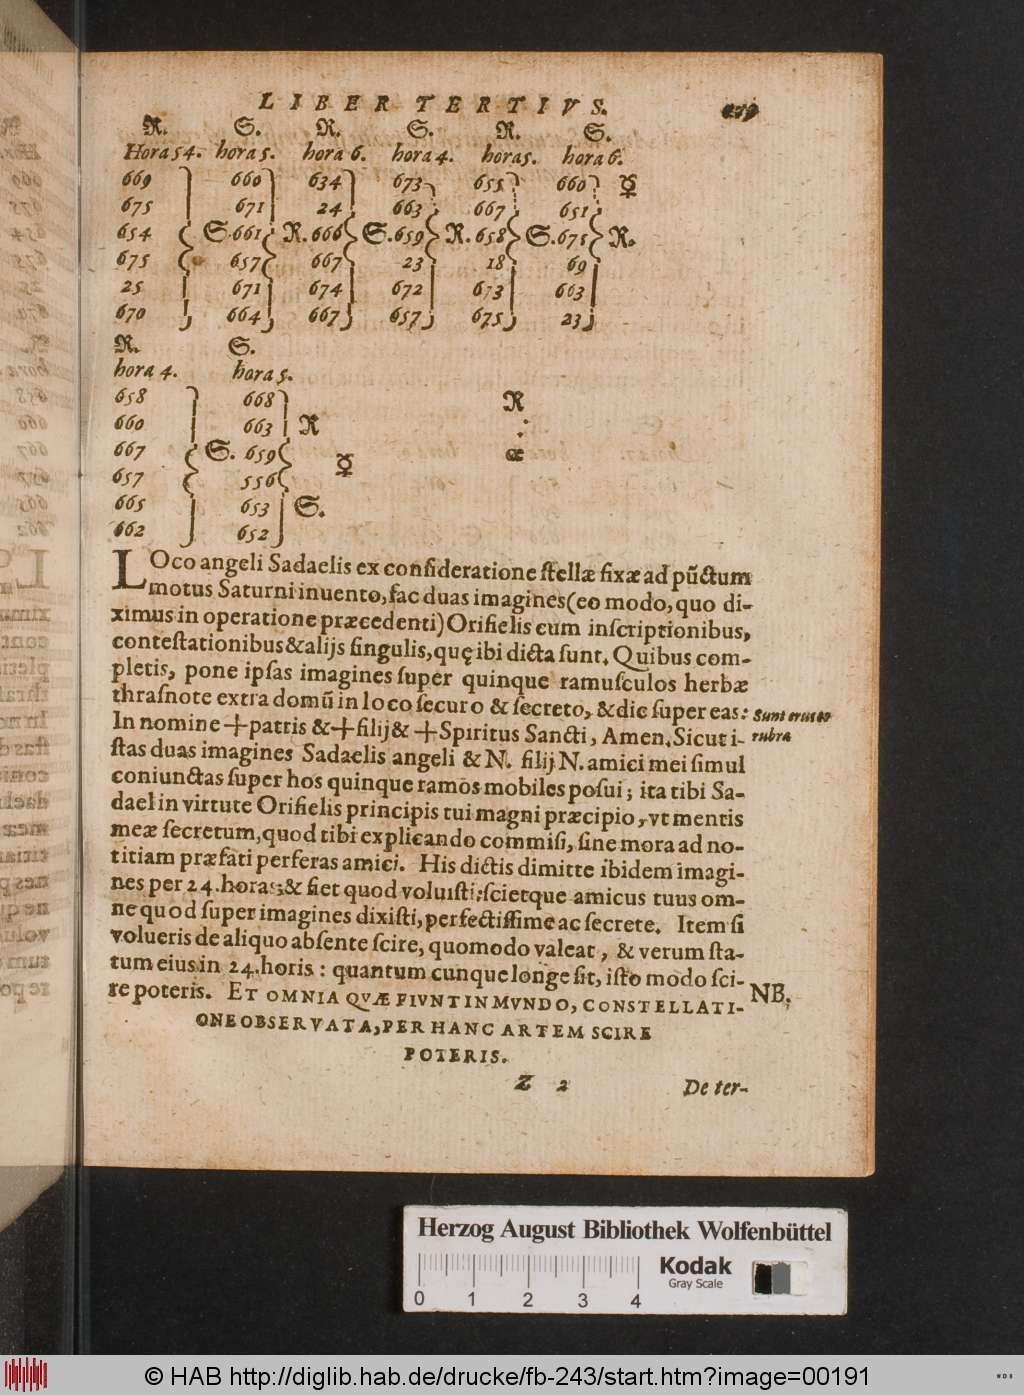 LIBER TERTIVS. 
R. S. R. S. R. S.
Hora 54. hora 5. hora 6. hora 4. hora5. hora 6.
669 660 634 673 655 660 ☿
675 671 24 663 667 651
654 S. 661 R. 666 S. 659 R. 658 S. 675 R.
675 657 667 23 18 69
25 671 674 672 673 663
670 664 667 657 675 23
R. S.
hora 4. hora 5.
658 668 R
660 663 R
667 S. 659 æ
657 556 ☿
665 653 S.
662 652
LOco angeli Sadaelis ex consideratione stellæ fixæ ad pūctum
motus Saturni inuento, fac duas imagines (eo modo, quo di-
ximus in operatione præcedenti) Orifielis cum inscriptionibus,
contestationibus & alijs singulis, quę ibi dicta sunt. Quibus com-
pletis, pone ipsas imagines super quinque ramusculos herbæ
thrasnote extra domū in loco securo & secreto, & dic super eas: Sunt
In nomine + patris & + filij & + Spiritus Sancti, Amen. Sicut i- rubra
stas duas imagines Sadaelis angeli & N. filij N. amici mei simul
coniunctas super hos quinque ramos mobiles posui; ita tibi Sa-
dael in virtute Orifielis principis tui magni præcipio, vt mentis
meæ secretum, quod tibi explicando commisi, sine mora ad no-
titiam præfati perferas amici. His dictis dimitte ibidem imagi-
nes per 24. horas; & fiet quod voluisti; scietque amicus tuus om-
ne quod super imagines dixisti, perfectissime ac secrete. Item si
volueris de aliquo absente scire, quomodo valeat, & verum sta-
tum eius in 24. horis: quantumcunque longe sit, isto modo sci-
re poteris. ET OMNIA QVÆ FIVNT IN MVNDO, CONSTELLATI- NB.
ONE OBSERVATA, PER HANC ARTEM SCIRE
POTERIS.
Z 2 De ter-
Herzog August Bibliothek Wolfenbüttel
Kodak
Gray Scale
0 1 2 3 4
© HAB http://diglib.hab.de/drucke/fb-243/start.htm?image=00191